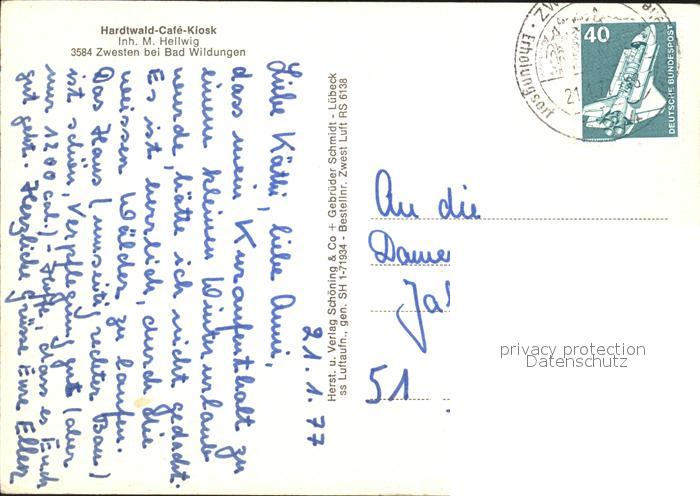 Hardtwald-Café-Kiosk
Inh. M. Hellwig
3584 Zwesten bei Bad Wildungen
21.1.77
Liebe Käthi, liebe Anni,
dass mein Kuraufenthalt zu
einem kleinen Winterurlaub
werde, hätte ich nicht gedacht.
Es ist herrlich, durch die
weissen Wälder zu laufen.
Das Haus (umseitig rechter Bau)
ist schön, Verpflegung gut (aber
nur 1200 cal.) - Hoffe, dass es Euch
gut geht. Herzliche Grüsse Eure Ellen
Herst. u. Verlag Schöning & Co + Gebrüder Schmidt - Lübeck
ss Luftaufn., gen. SH 1-71934 - Bestellnr. Zwest Luft RS 6138
40
DEUTSCHE BUNDESPOST
Erholungsort
An die
Dame
51
privacy protection
Datenschutz